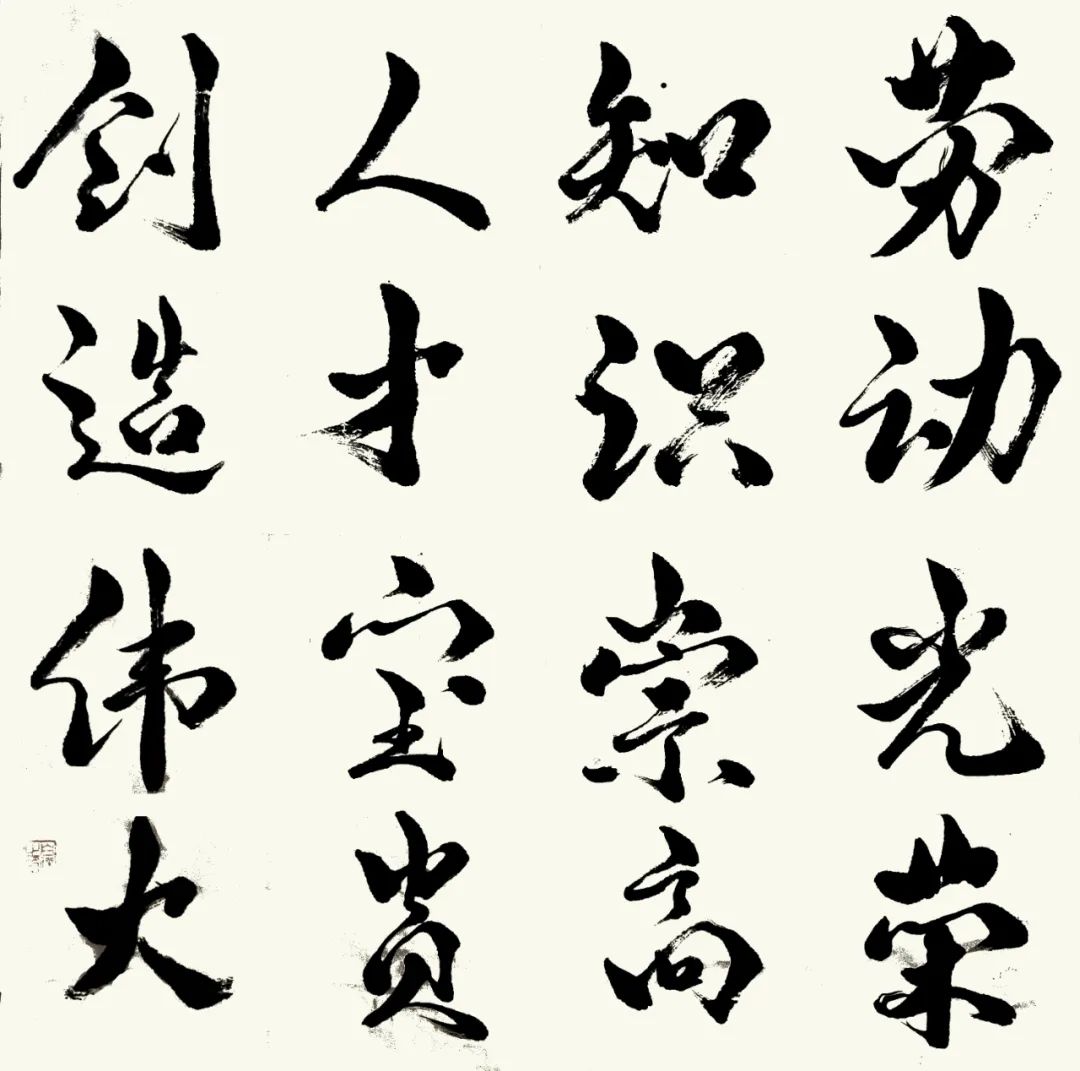 劳动光荣
知识崇高
人才宝贵
创造伟大